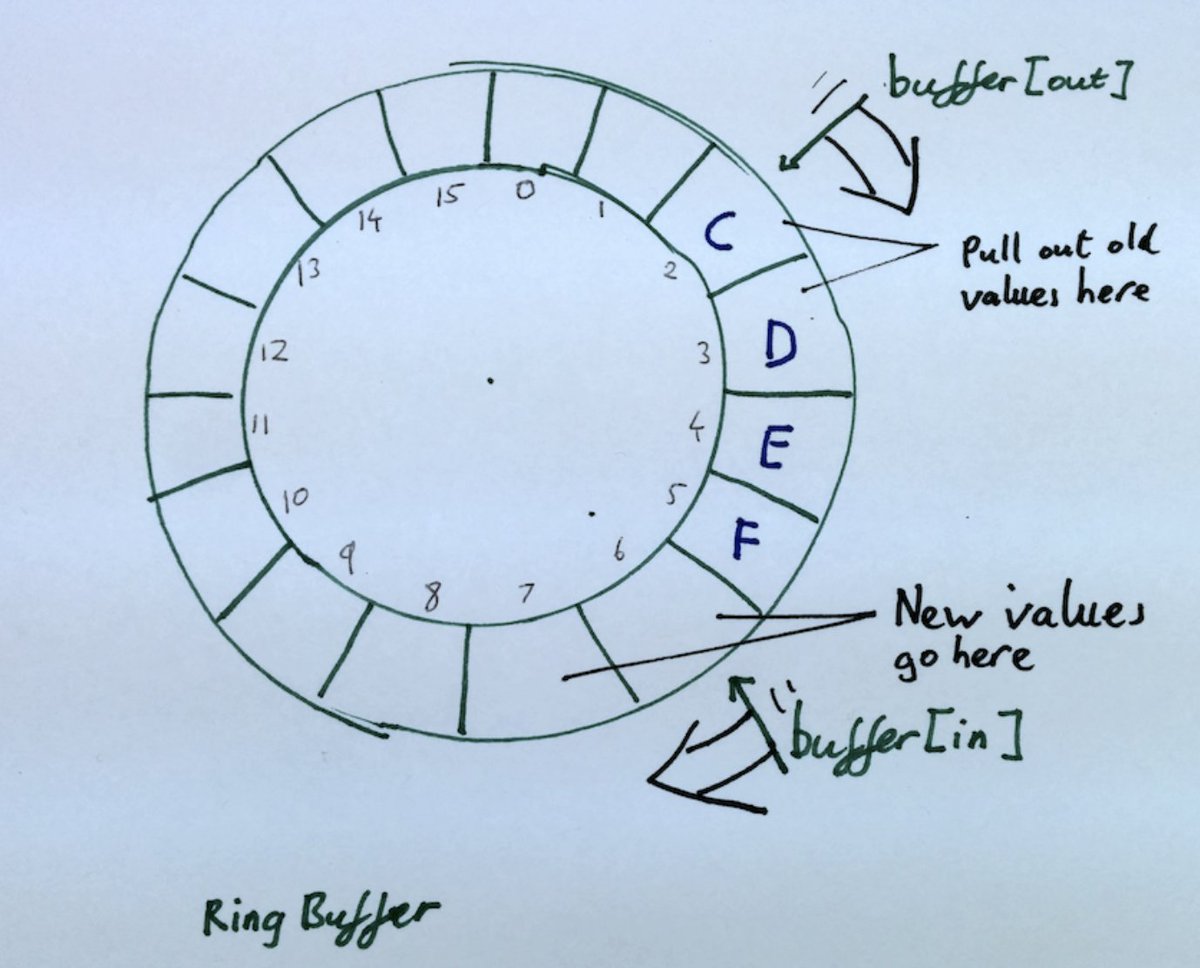 buffer[out]
Pull out old
values here
15
0
1
2
3
4
5
6
7
8
9
10
11
12
13
14
C
D
E
F
New values
go here
buffer[in]
Ring Buffer